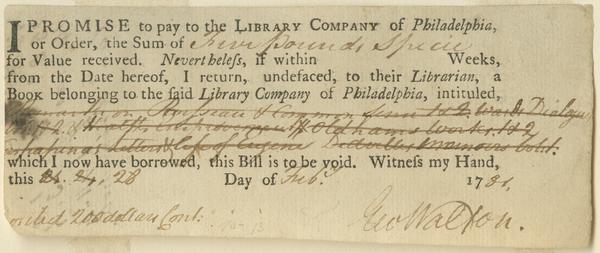 I PROMISE to pay to the LIBRARY COMPANY of Philadelphia,
or Order, the Sum of Five Pounds Specie
for Value received. Nevertheless, if within Weeks,
from the Date hereof, I return, undefaced, to their Librarian, a
Book belonging to the said Library Company of Philadelphia, intituled,
on & Common 1 & 2 Wards
Oldhams Works 1 & 2
Letters & Life of Eugene Memoirs
which I now have borrowed, this Bill is to be void. Witness my Hand,
this 24 28 Day of Feb. 1781.
200 dollars Cont:
Geo Walton.